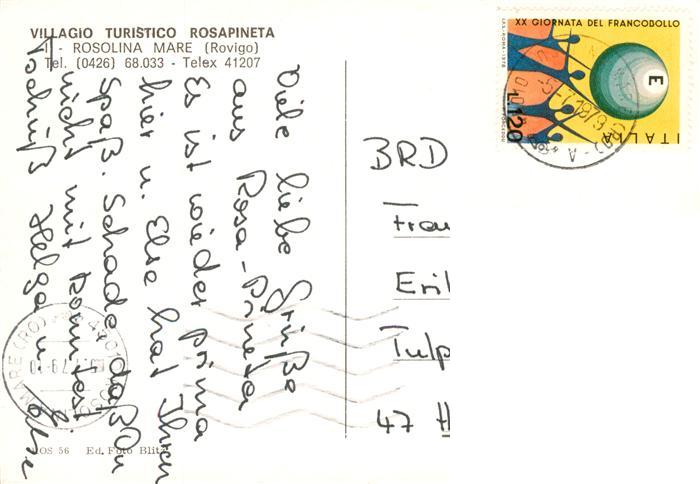 VILLAGIO TURISTICO ROSAPINETA
I - ROSOLINA MARE (Rovigo)
Tel. (0426) 68.033 - Telex 41207
Viele liebe Grüße
aus Rosa-Pineta
Es ist wieder prima
hier u. Else hat Ihren
Spaß. Schade daß Du
nicht mit konntest.
Tschüß Helga u. Else
OS 56 Ed. Foto Blitz
XX GIORNATA DEL FRANCOBOLLO
E
ITALIA
L.120
BRD
Frau
Tulp
47 H